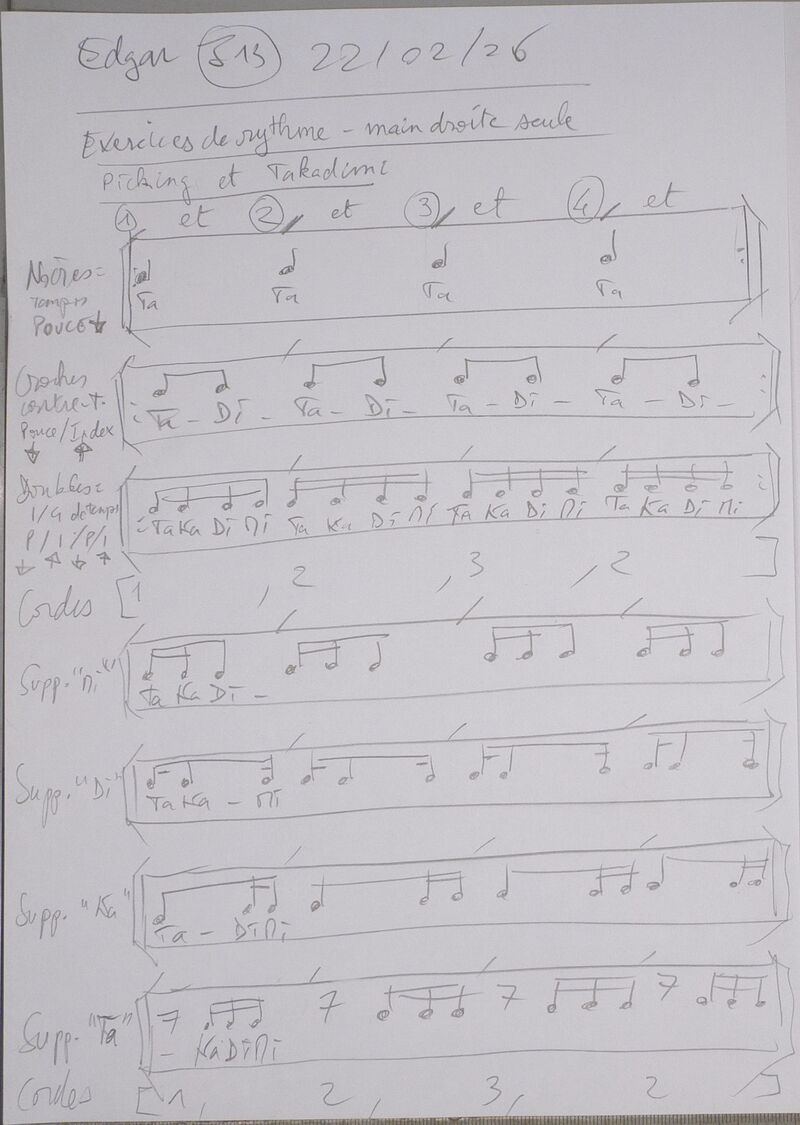 Edgar S13 22/02/26
Exercices de rythme - main droite seule
Picking et Takadimi
1 et 2 et 3 et 4 et
Noires =
Temps
POUCE ↓
Ta Ta Ta Ta
Croches
contre-t.
Pouce/Index
↓ ↑
Ta - Di - Ta - Di - Ta - Di - Ta - Di -
Doubles =
1/4 de temps
P/I/P/I
↓ ↑ ↓ ↑
Ta Ka Di Mi Ta Ka Di Mi Ta Ka Di Mi Ta Ka Di Mi
Cordes [1 , 2 , 3 , 2 ]
Supp. "Mi"
Ta Ka Di -
Supp. "Di"
Ta Ka - Mi
Supp. "Ka"
Ta - Di Mi
Supp. "Ta"
- Ka Di Mi
Cordes [1, 2, 3, 2 ]